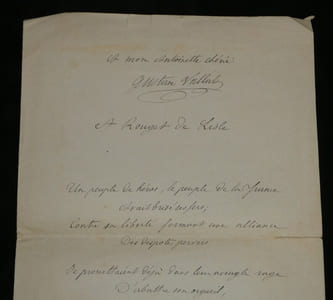 A mon Antoinette chérie
Gustave
A Rouget de Lisle
Un peuple de héros, le peuple de la France
Avait brisé ses fers;
Contre sa liberté formant une alliance
Des despotes pervers
Se promettaient déjà dans leur aveugle rage
D'abattre son orgueil,